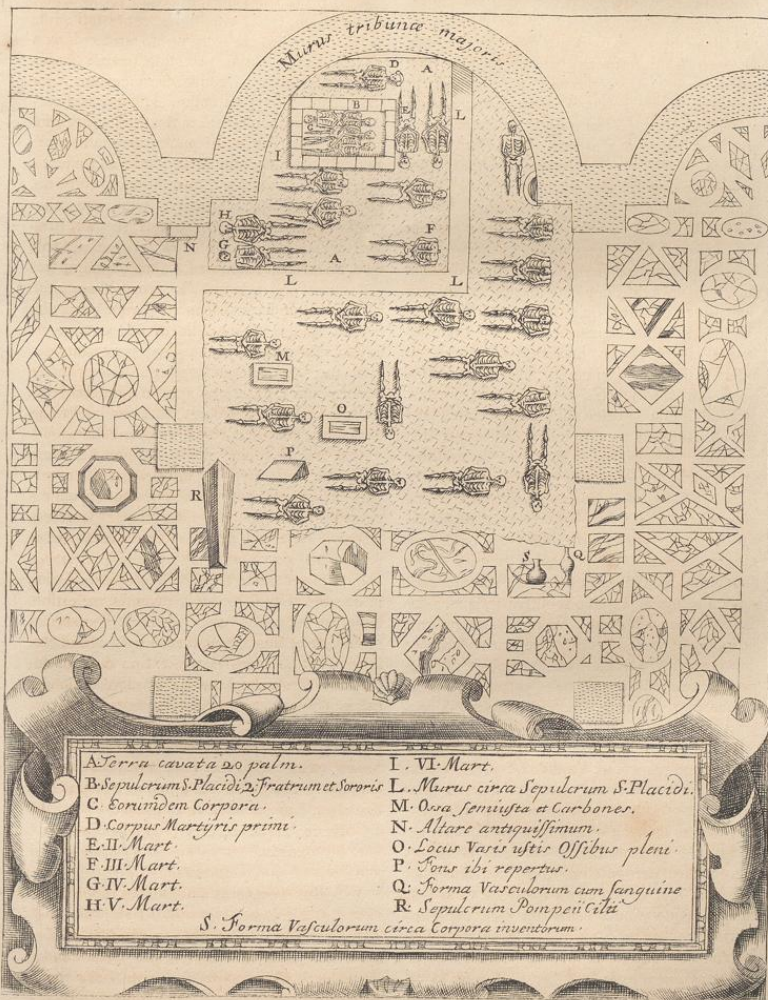 Murus tribunæ majoris
D
A
B
E
L
I
H
F
G
A
N
L
L
M
O
P
R
S
Q
A. Terra cavata 20 palm.
B. Sepulcrum S. Placidi, 2. Fratrum et Sororis
C. Eorumdem Corpora.
D. Corpus Martyris primi.
E. II. Mart.
F. III. Mart.
G. IV. Mart.
H. V. Mart.
I. VI. Mart.
L. Murus circa Sepulcrum S. Placidi.
M. Ossa semiusta et Carbones.
N. Altare antiquissimum.
O. Locus Vasis ustis Ossibus pleni.
P. Fons ibi repertus.
Q. Forma Vasculorum cum sanguine
R. Sepulcrum Pompeii Cilii
S. Forma Vasculorum circa Corpora inventorum.